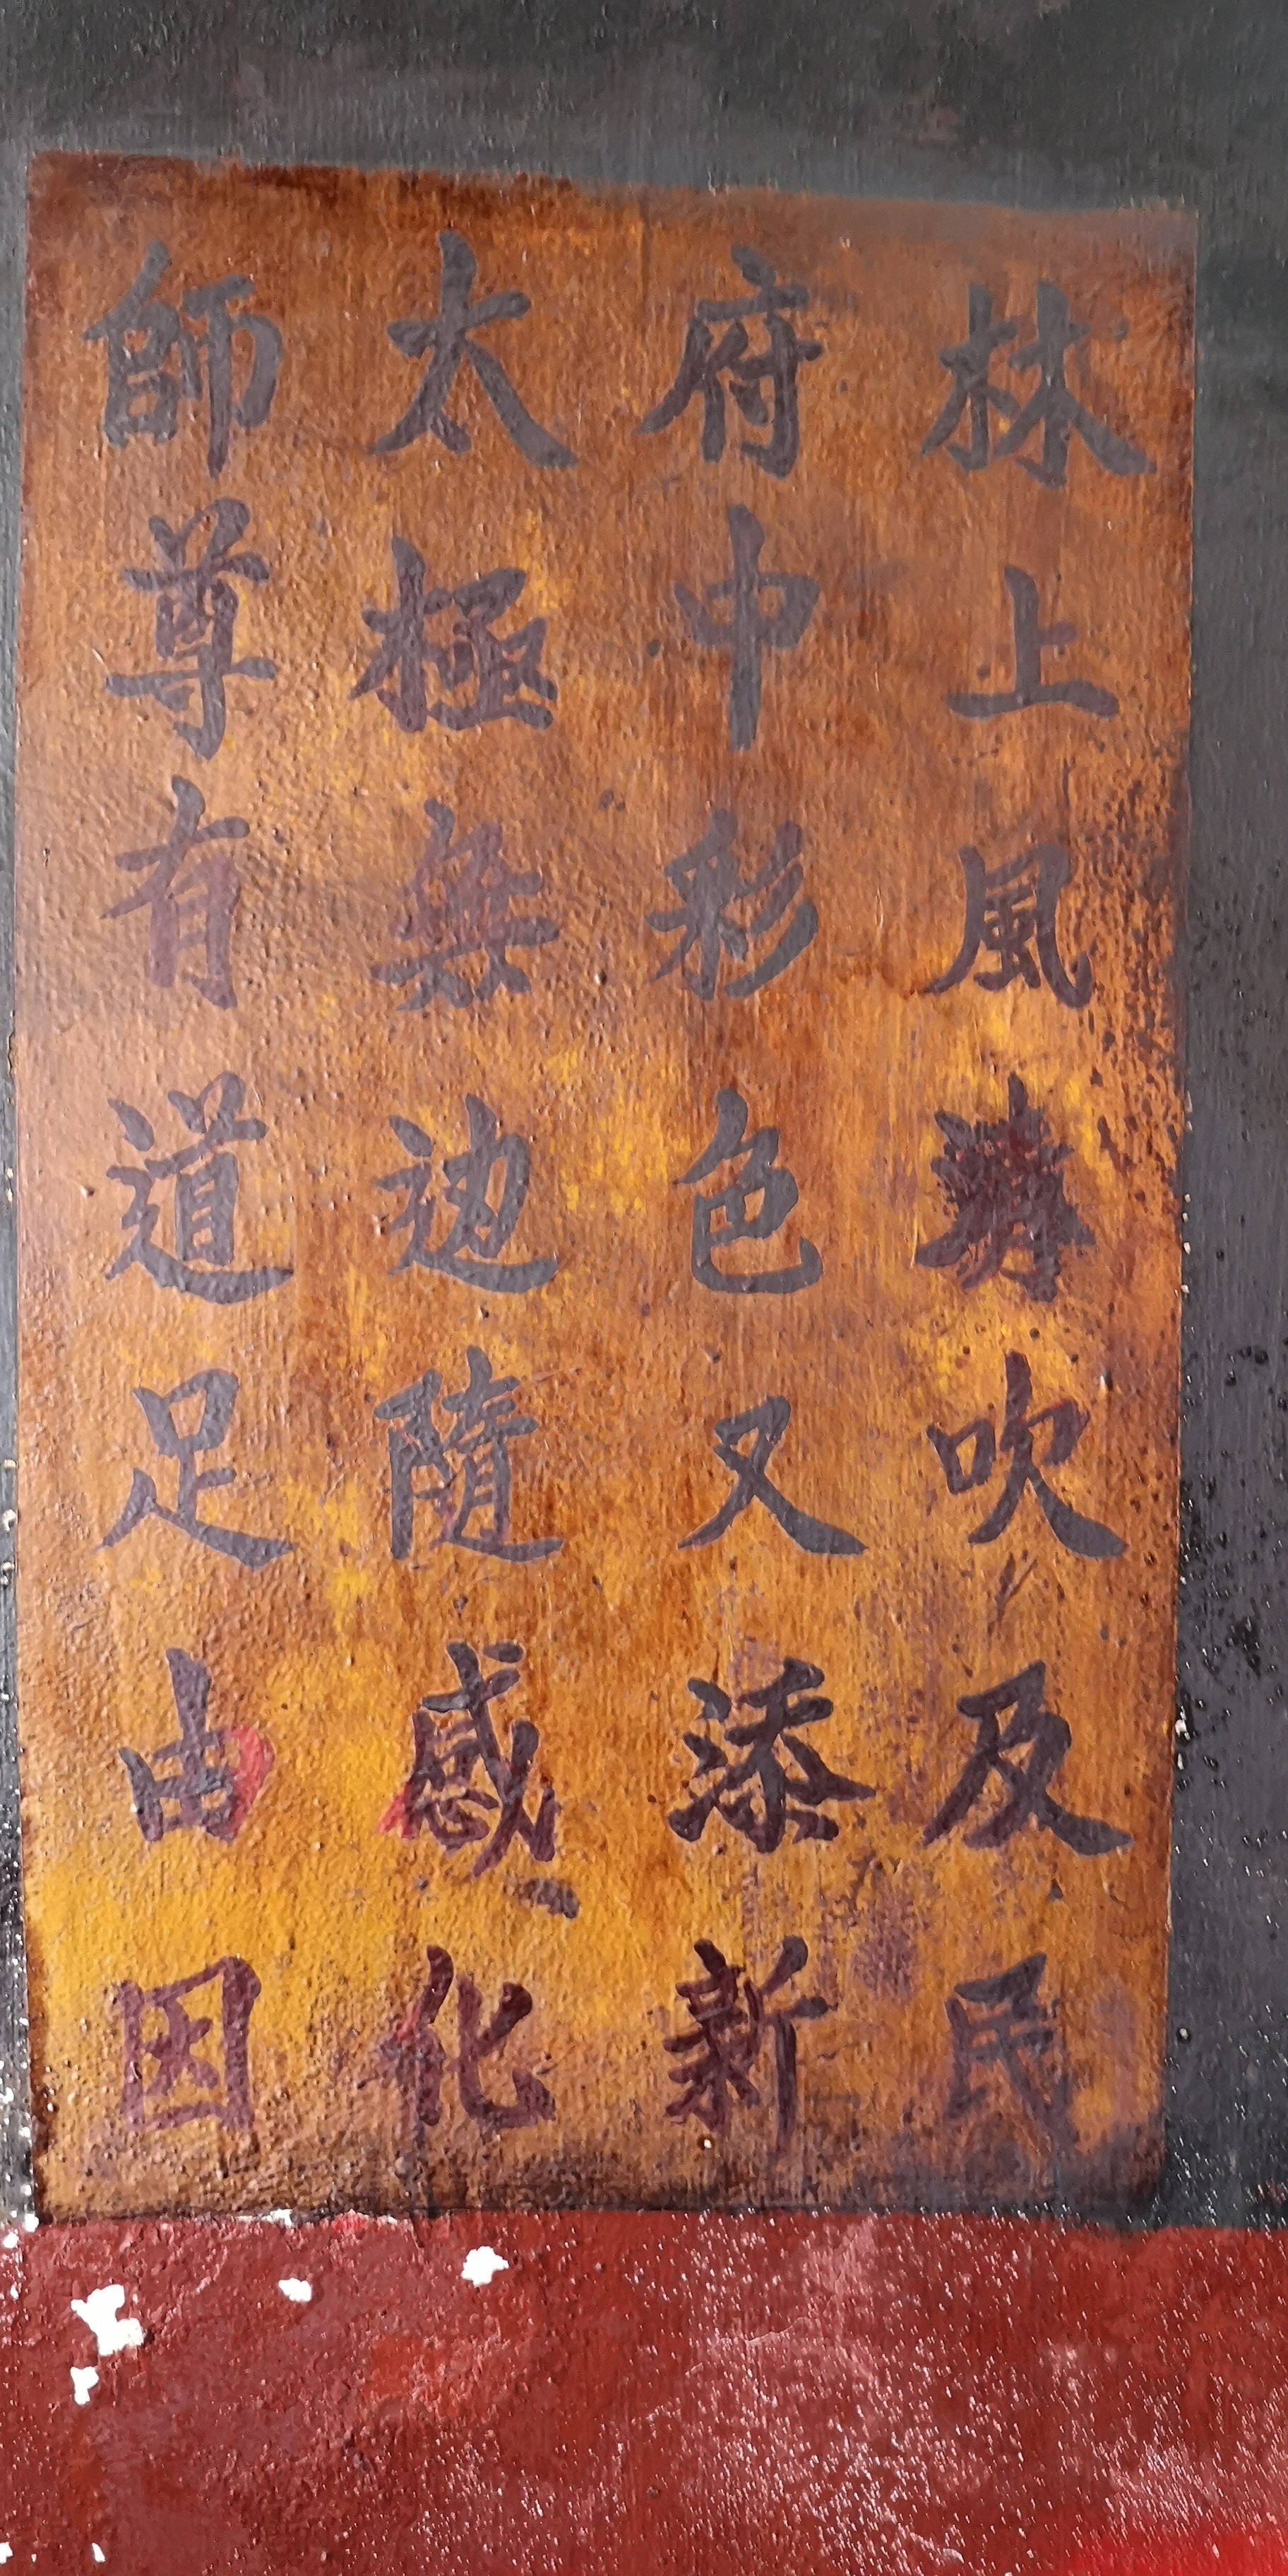 林上風清吹及民
府中彩色又添新
太極無边隨感化
師尊有道足由因